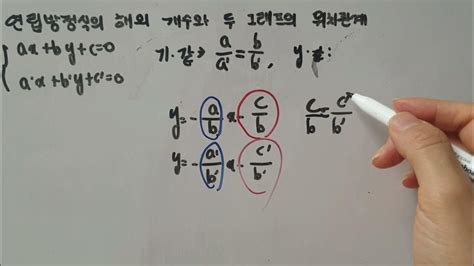 연립방정식의 해의 개수와 두 그래프의 위치관계
ax+by+c=0
a'x+b'y+c'=0
기.같⇒ a/a' = b/b' , y :
y=-a/b x - c/b
c/b = c'/b'
y=-a'/b' x - c'/b'